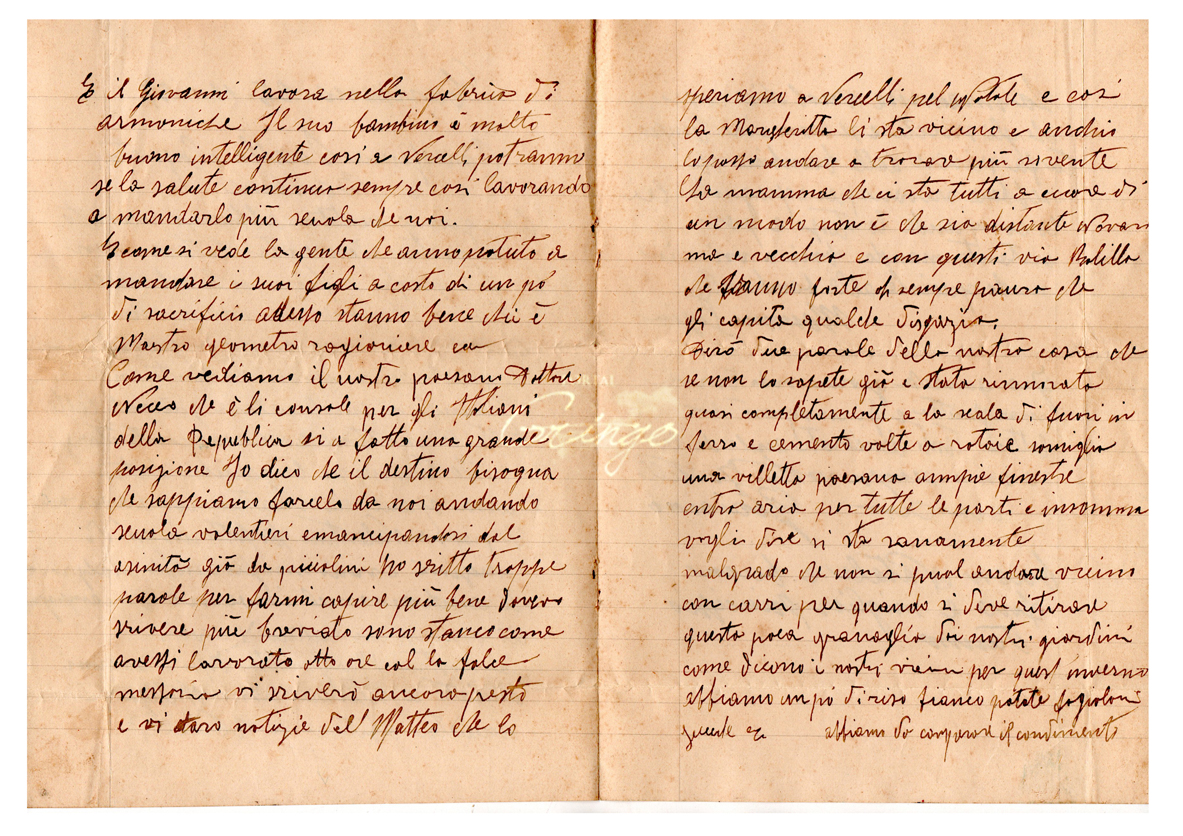 E il Giovanni lavora nella fabrica di
armoniche Il suo bambino è molto
buono intelligente cosi a Vercelli potranno
se la salute continua sempre cosi lavorando
a mandarlo più scuola che noi.
E come si vede la gente che anno potuto a
mandare i suoi figli a costo di un pò
di sacrificio adesso stanno bene chi è
Mastro geometra ragioniere ecc
Come vediamo il nostro paesano Dottore
che è li console per gli Italiani
della Republica si a fatto una grande
posizione Io dico che il destino bisogna
che sappiamo farcelo da noi andando
scuola volentieri emancipandosi dal
asinità già da piccolini ho scritto troppe
parole per farmi capire più bene dovevo
scrivere più breviato sono stanco come
avessi lavorato otto ore col la falce
messoria vi scriverò ancora presto
e vi daro notizie del Matteo che lo
speriamo a Vercelli pel Natale e cosi
la Margheritta li sta vicino e anchio
lo posso andare a trovare più sovente
La mamma che ci sta tutti a cuore di
un modo non è che sia distante Novara
ma e vecchia e con questi via Balilla
che fanno forte o sempre paura che
gli capita qualche disgrazia.
Dirò due parole della nostra casa che
se non lo sapete già e stata rinnovata
quasi completamente a la scala di fuori in
ferro e cemento volte a rotaie somiglia
una villetta paesana ampie finestre
entra aria per tutte le parti e insomma
vogli dire si sta sanamente
malgrado che non si può andare vicino
con carri per quando si deve ritirare
questa poca granaglia dai nostri giardini
come dicono i nostri vicini per quest inverno
abbiamo un pò di riso bianco patate fagioloni
zucche ecc abbiamo da comperare il condimento
Gringo